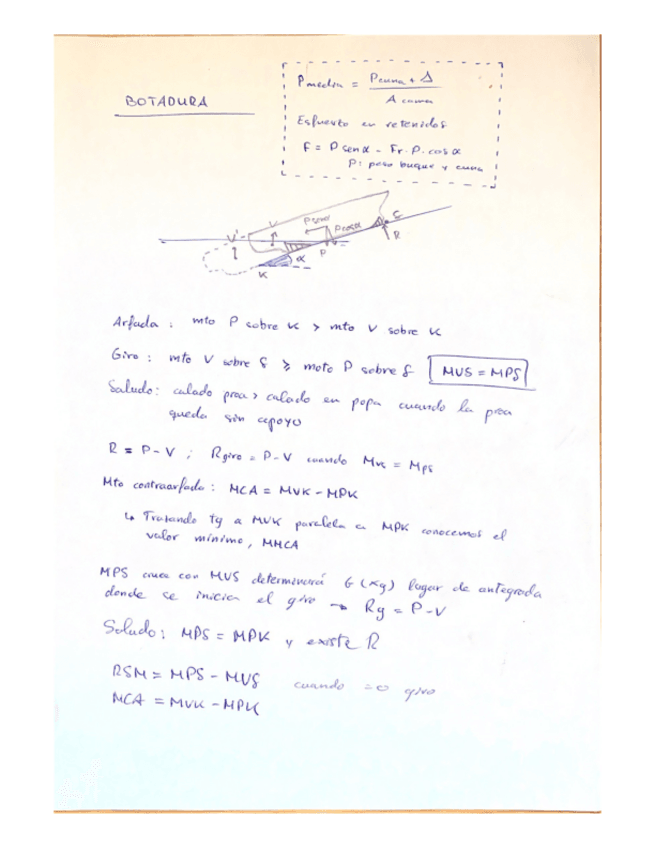 BOTADURA
Pmedia = Pcuna + Δ
A cama
Esfuerzo en retenidas
F = P senα - Fr. P. cosα
P: peso buque y cuna
V'
V
Psenα
Pcosα
S
R
P
α
K
Arfada: mto P sobre K > mto V sobre K
Giro: mto V sobre S ≥ moto P sobre S MVS = MPS
Saludo: calado proa > calado en popa cuando la proa
queda sin apoyo
R = P - V ; Rgiro = P - V cuando Mvs = Mps
Mto contraarfada: MCA = MVK - MPK
↳ Trazando tg a MVK paralela a MPK conocemos el
valor mínimo, MMCA
MPS cruce con MVS determinará G (xg) lugar de antegrada
donde se inicia el giro → Rg = P - V
Saludo: MPS = MPK y existe R
RSM = MPS - MVS cuando =0 giro
MCA = MVK - MPK